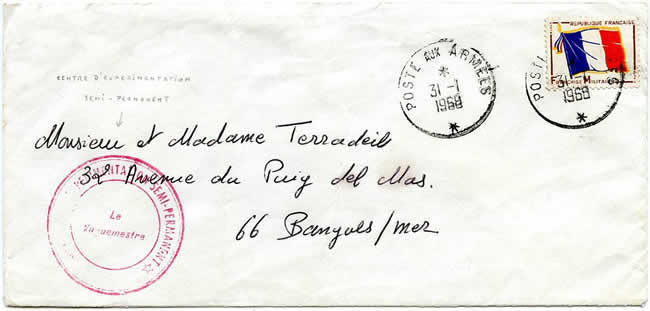 REPUBLIQUE FRANÇAISE
FRANCHISE MILITAIRE
POSTE AUX ARMÉES
*
31-1
1968
*
POSTE
31-1
1968
*
CENTRE D'EXPERIMENTATION
SEMI-PERMANENT
Monsieur et Madame Terradeil
32 Avenue du Puig del Mas.
66 Banyuls/mer
SEMI-PERMANENT
Le